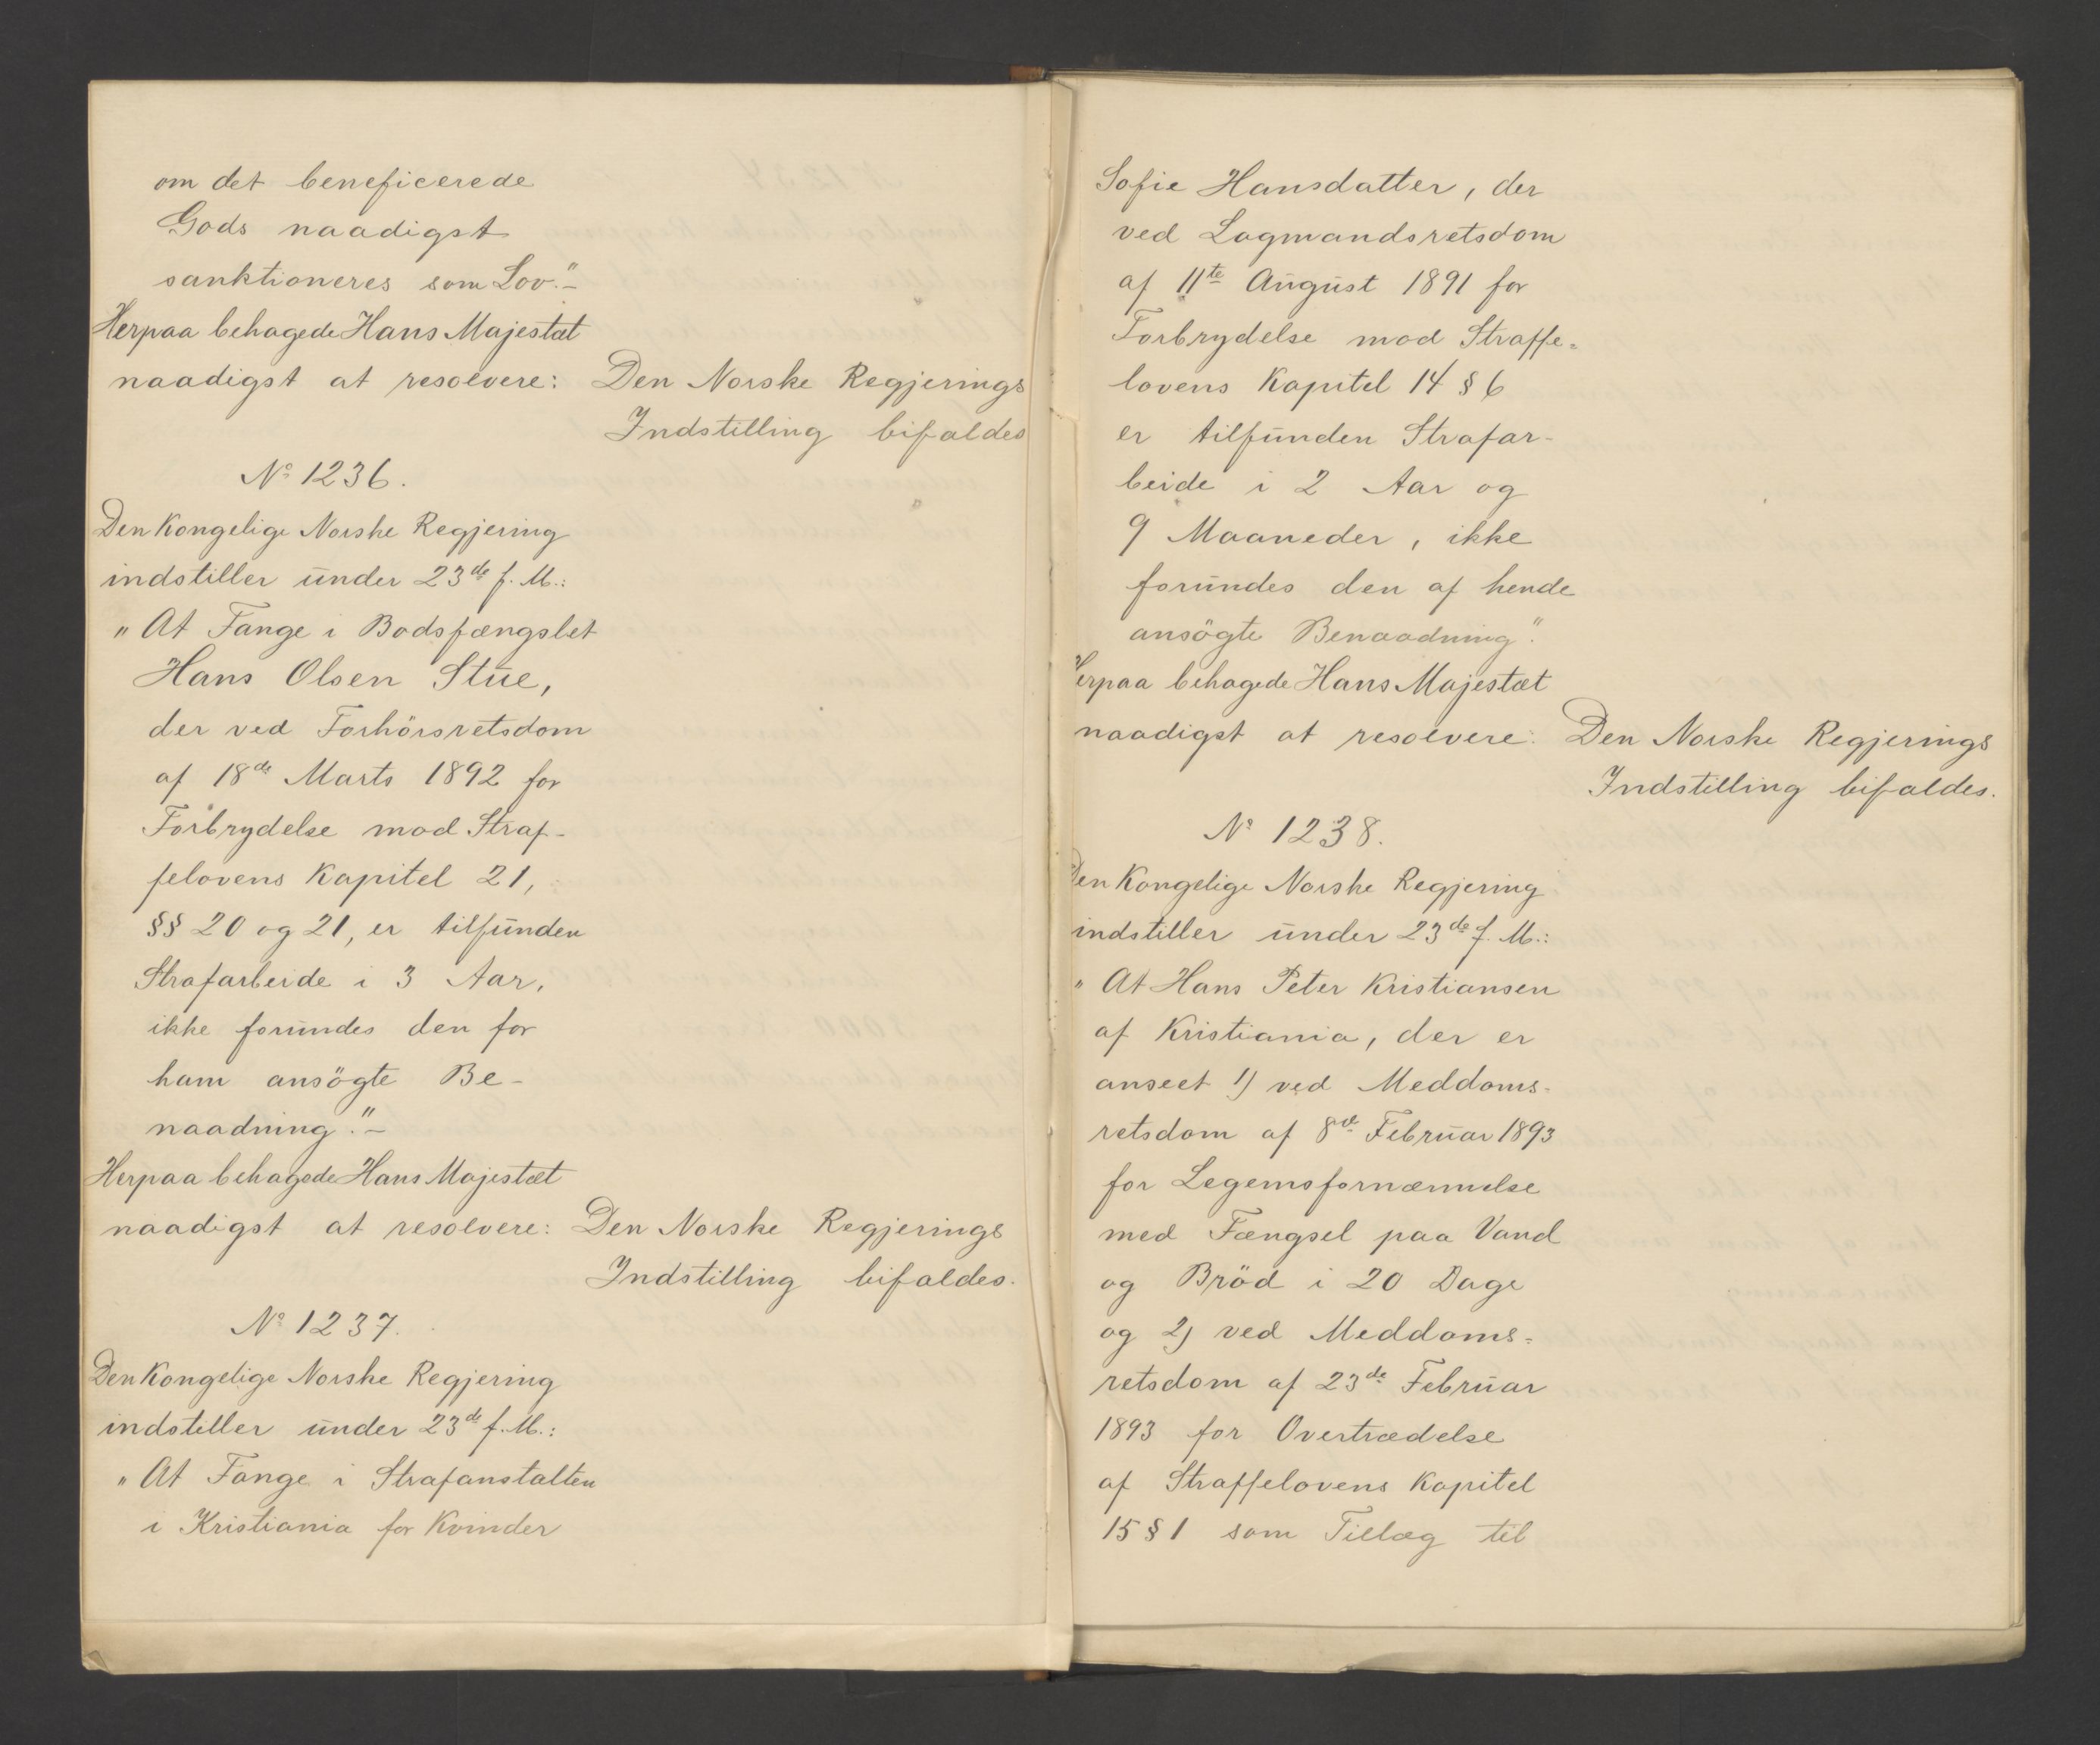 om det beneficerede
Gods naadigst
sanktioneres som Lov."-
Herpaa behagede Hans Majestæt
naadigst at resolvere: Den Norske Regjerings
Indstilling bifaldes
No 1236.
Den Kongelige Norske Regjering
indstiller under 23de f. M.:
"At Fange i Bodsfængslet
Hans Olsen Stue,
der ved Forhörsretsdom
af 18de Marts 1892 for
Forbrydelse mod Straf-
felovens Kapitel 21,
§§ 20 og 21, er tilfunden
Strafarbeide i 3 Aar,
ikke forundes den for
ham ansögte Be-
naadning."-
Herpaa behagede Hans Majestæt
naadigst at resolvere: Den Norske Regjerings
Indstilling bifaldes.
No 1237.
Den Kongelige Norske Regjering
indstiller under 23de f. M.:
"At Fange i Strafanstalten
i Kristiania for Kvinder
Sofie Hansdatter, der
ved Lagmandsretsdom
af 11te August 1891 for
Forbrydelse mod Straffe=
lovens Kapitel 14 § 6
er tilfunden Strafar-
beide i 2 Aar og
9 Maaneder, ikke
forundes den af hende
ansögte Benaadning".
Herpaa behagede Hans Majestæt
naadigst at resolvere: Den Norske Regjerings
Indstilling bifaldes.
No 1238.
Den Kongelige Norske Regjering
indstiller under 23de f. M.:
"At Hans Peter Kristiansen
af Kristiania, der er
anseet 1) ved Meddoms-
retsdom af 8de Februar 1893
for Legemsfornærmelse
med Fængsel paa Vand
og Bröd i 20 Dage
og 2) ved Meddoms=
retsdom af 23de Februar
1893 for Overtrædelse
af Straffelovens Kapitel
15 § 1 som Tillæg til